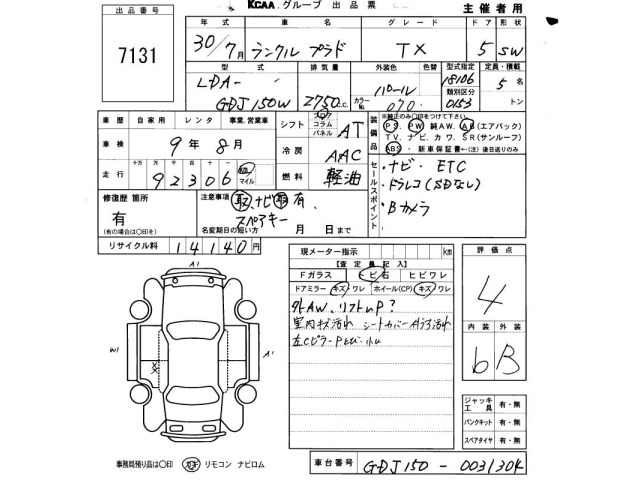 KCAA グループ 出品票
主催者用
出品番号
7131
年式 車名 グレード ドア 形状
30/7月 ランクル プラド TX 5 SW
型式 排気量 外装色 色替 型式指定 定員・積載
LDA- 18106 5名
類別区分
GDJ150W 2750c.c. パール カラーNo. 070 0153 トン
車歴 自家用 レンタ 事業、営業車
車検 9年8月
走行 十万 万 千 百 十 一 km マイル
92306
シフト フロア コラム パネル AT
冷房 AAC
燃料 軽油
装備品
※純正のみ○印をつけて下さい。
PS. PW. 純AW. AB(エアバック)
TV. ナビ. カワ. SR(サンルーフ)
ABS. 新車保証書←(注)後日送りのみ
セールスポイント
・ナビ・ETC
・ドラレコ(SDなし)
・Bカメラ
修復歴 箇所
有
(有の場合は○印を)
注意事項 取 ナビ取有.
スペアキー
名変期日の短い方 月 日まで
リサイクル料 14140円
現メーター指示 km
【査定員記入】
Fガラス キズ ヒビ石 ヒビワレ
ドアミラー キズ・ワレ ホイール(CP) キズ・ワレ
外AW. リフトUP?
室内キズ汚れ シートカバー
左Cピラー
評価点
4
内装 外装
b B
A1
W1
A1
ジャッキ工具 有・無
パンクキット 有・無
スペアタイヤ 有・無
事務局預り品は○印 カギ リモコン ナビロム
車台番号 GDJ150-0031304